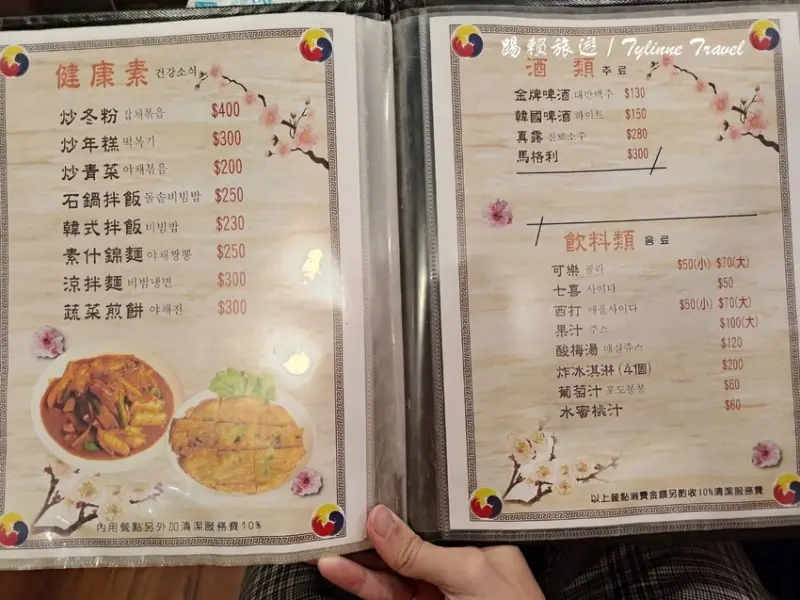 健康素 건강소식
炒冬粉 잡채볶음 $400
炒年糕 떡복기 $300
炒青菜 야채볶음 $200
石鍋拌飯 돌솥비빔밥 $250
韓式拌飯 비빔밥 $230
素什錦麵 야채짬뽕 $250
涼拌麵 비빔냉면 $300
蔬菜煎餅 야채전 $300
內用餐點另外加清潔服務費10%
踢賴旅遊 / Tylinne Travel
酒類 주료
金牌啤酒 대만맥주 $130
韓國啤酒 하이트 $150
真露 진로소주 $280
馬格利 $300
飲料類 음료
可樂 콜라 $50(小) $70(大)
七喜 사이다 $50
西打 애플사이다 $50(小) $70(大)
果汁 주스 $100(大)
酸梅湯 매실쥬스 $120
炸冰淇淋(4個) $200
葡萄汁 포도봉봉 $60
水蜜桃汁 $60
以上餐點消費金額另酌收10%清潔服務費